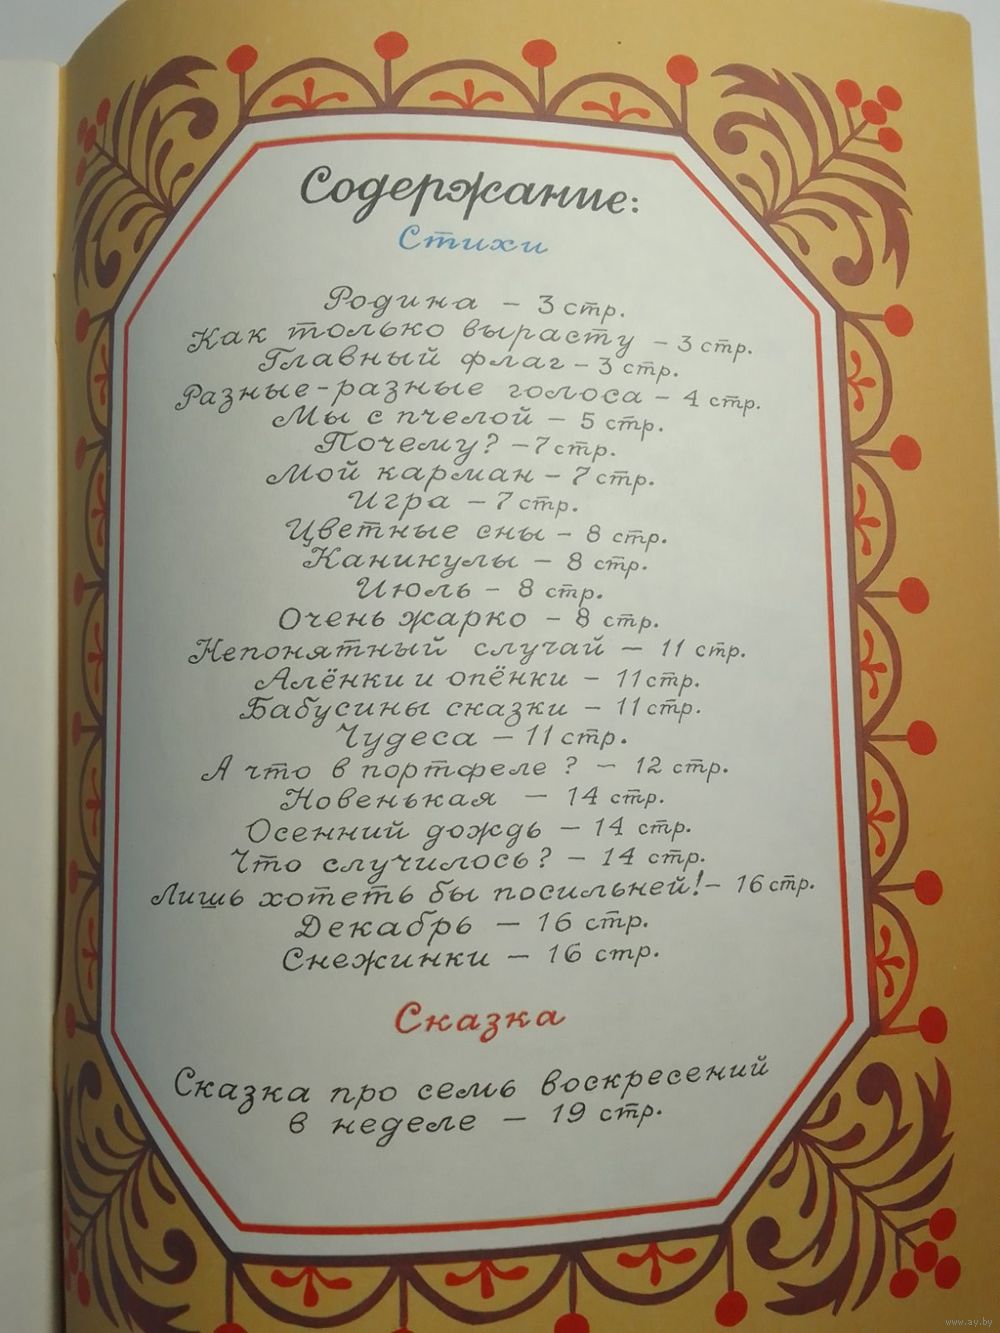 Содержание:
Стихи
Родина – 3 стр.
Как только вырасту – 3 стр.
Главный флаг – 3 стр.
Разные-разные голоса – 4 стр.
Мы с пчелой – 5 стр.
Почему? – 7 стр.
Мой карман – 7 стр.
Игра – 7 стр.
Цветные сны – 8 стр.
Каникулы – 8 стр.
Июль – 8 стр.
Очень жарко – 8 стр.
Непонятный случай – 11 стр.
Алёнки и опёнки – 11 стр.
Бабусины сказки – 11 стр.
Чудеса – 11 стр.
А что в портфеле ? – 12 стр.
Новенькая – 14 стр.
Осенний дождь – 14 стр.
Что случилось? – 14 стр.
Лишь хотеть бы посильней! – 16 стр.
Декабрь – 16 стр.
Снежинки – 16 стр.
Сказка
Сказка про семь воскресений
в неделе – 19 стр.
www.ay.by